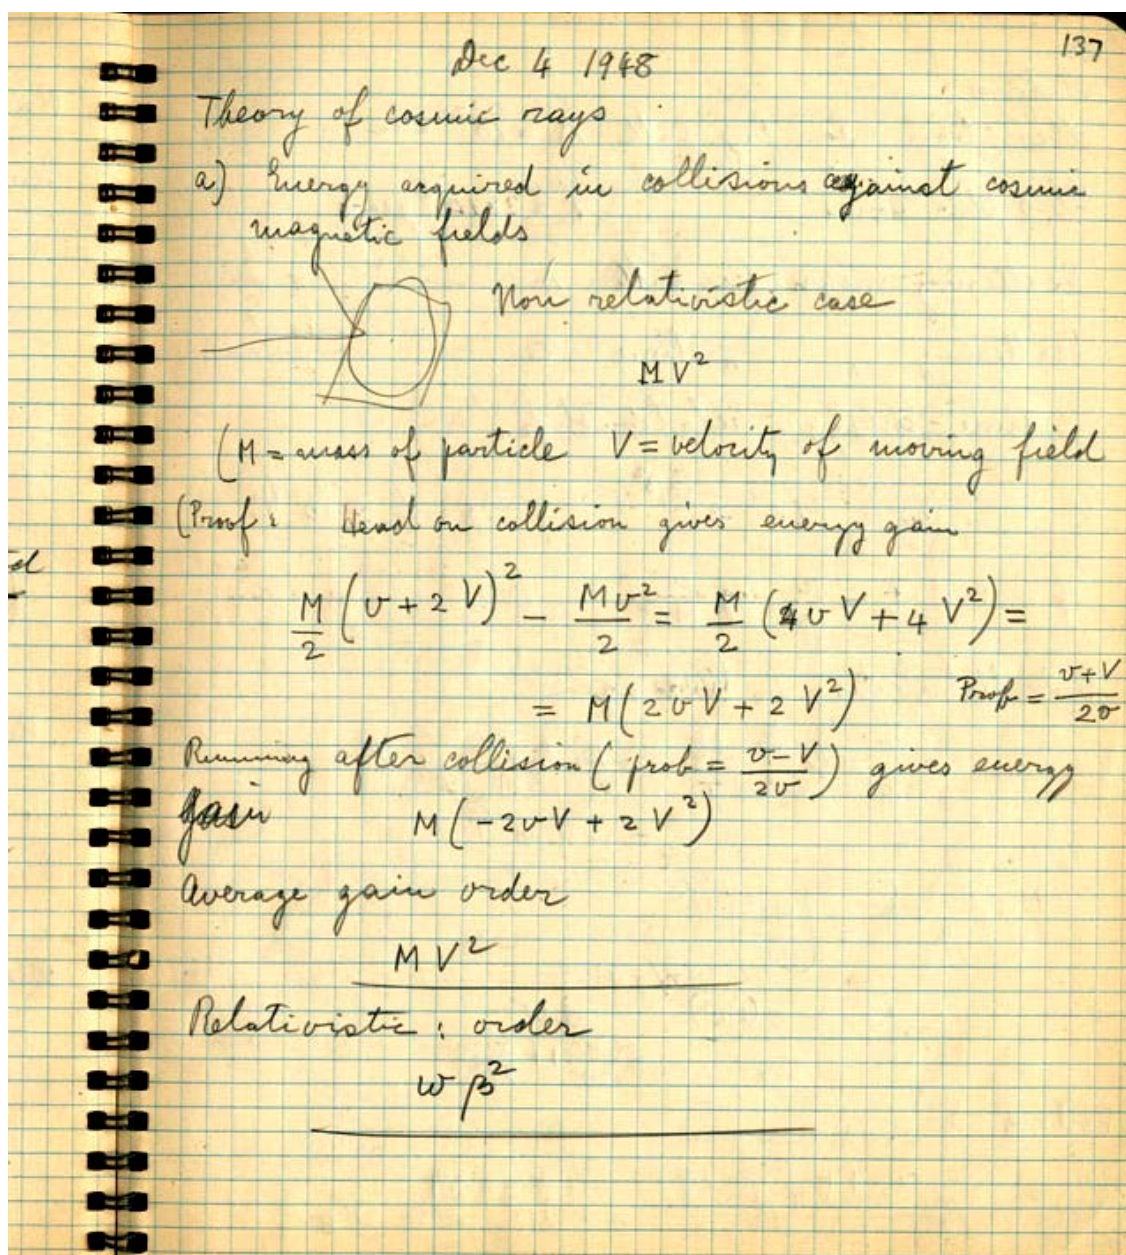 137
Dec 4 1948
Theory of cosmic rays
a) Energy acquired in collisions against cosmic
magnetic fields
Non relativistic case
M V²
(M = mass of particle V = velocity of moving field
(Proof: Head on collision gives energy gain
M/2 (v + 2 V)² - Mv²/2 = M/2 (4vV + 4V²) =
= M(2vV + 2V²) Prob = v+V/2v
Running after collision (prob = v-V/2v) gives energy
gain M(-2vV + 2V²)
Average gain order
M V²
Relativistic: order
w β²